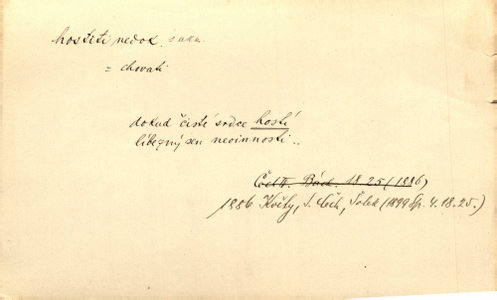 hostiti nedok. s aku.
= chovati
dokud čisté srdce hostí
libezný sen nevinnosti..
Čech Bás. 18.25 (1886)
1886 Květy, S. Čech, Sokol (1899 Sp. 4. 18. 25.)